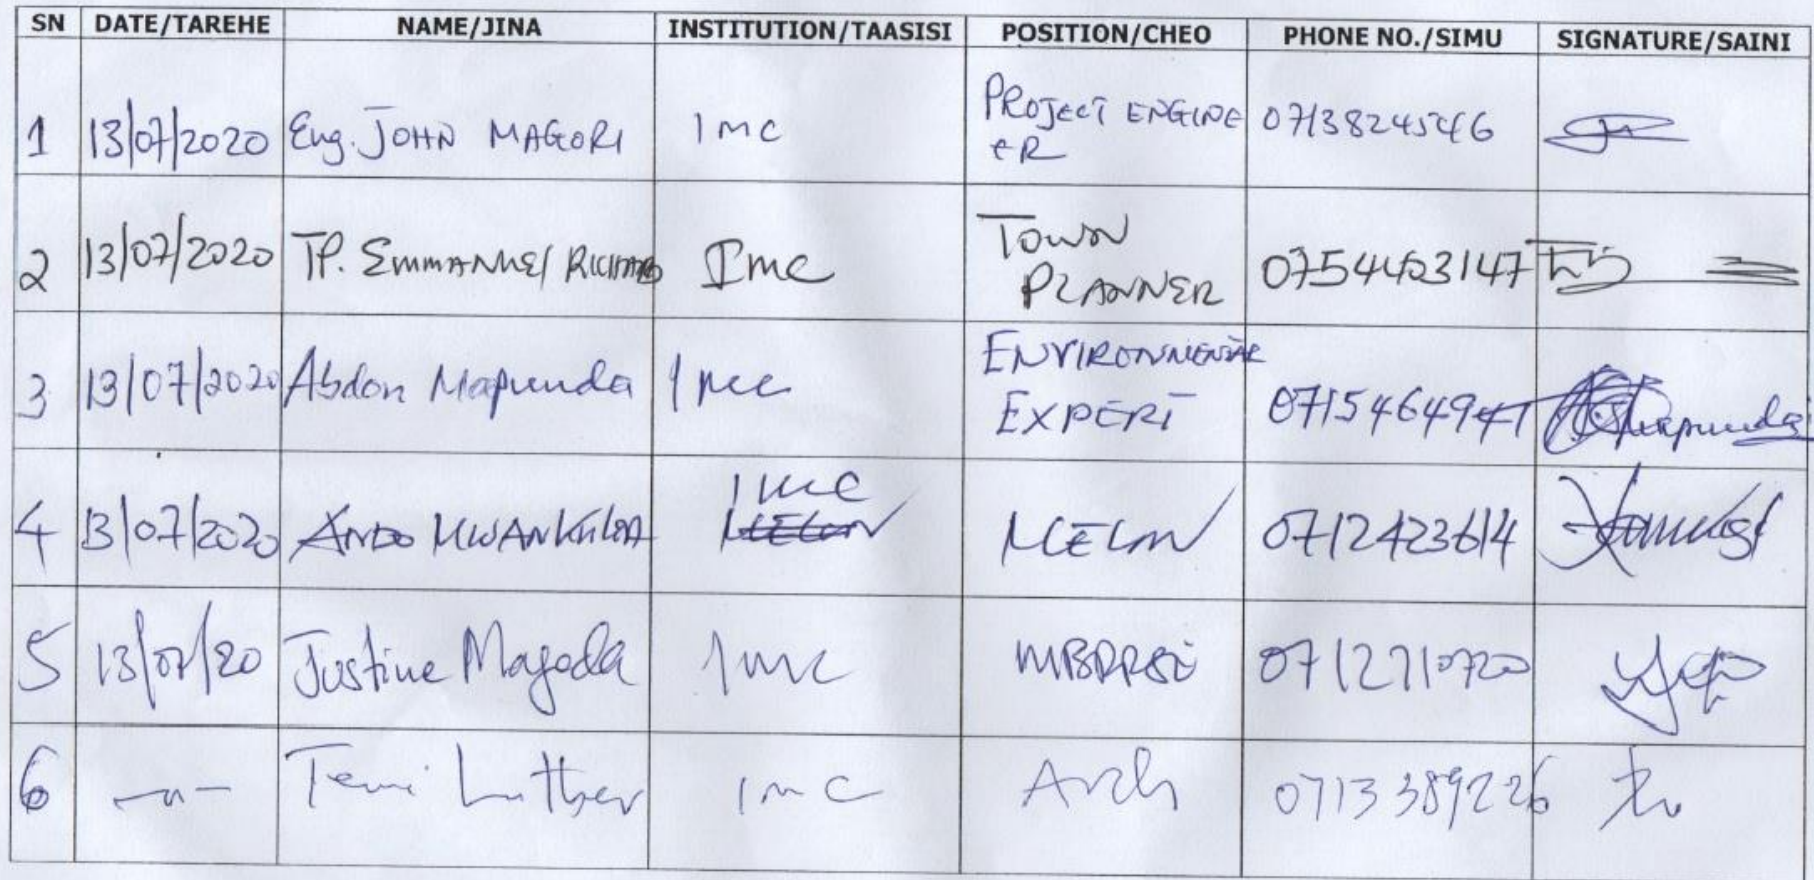 SN DATE/TAREHE NAME/JINA INSTITUTION/TAASISI POSITION/CHEO PHONE NO./SIMU SIGNATURE/SAINI
1 13/07/2020 Eng. JOHN MAGORI IMC PROJECT ENGINE 0713824546
ER
2 13/07/2020 TP. EMMANUEL RICHARD IMC TOWN
PLANNER 0754423147
3 13/07/2020 Abdon Mapunda IMC ENVIRONMENTAL
EXPERT 0715464947
4 13/07/2020 ANDO IMC
0712423614
5 13/07/20 Justine IMC 0712710720
6 -"- Luther IMC Arch 0713389226